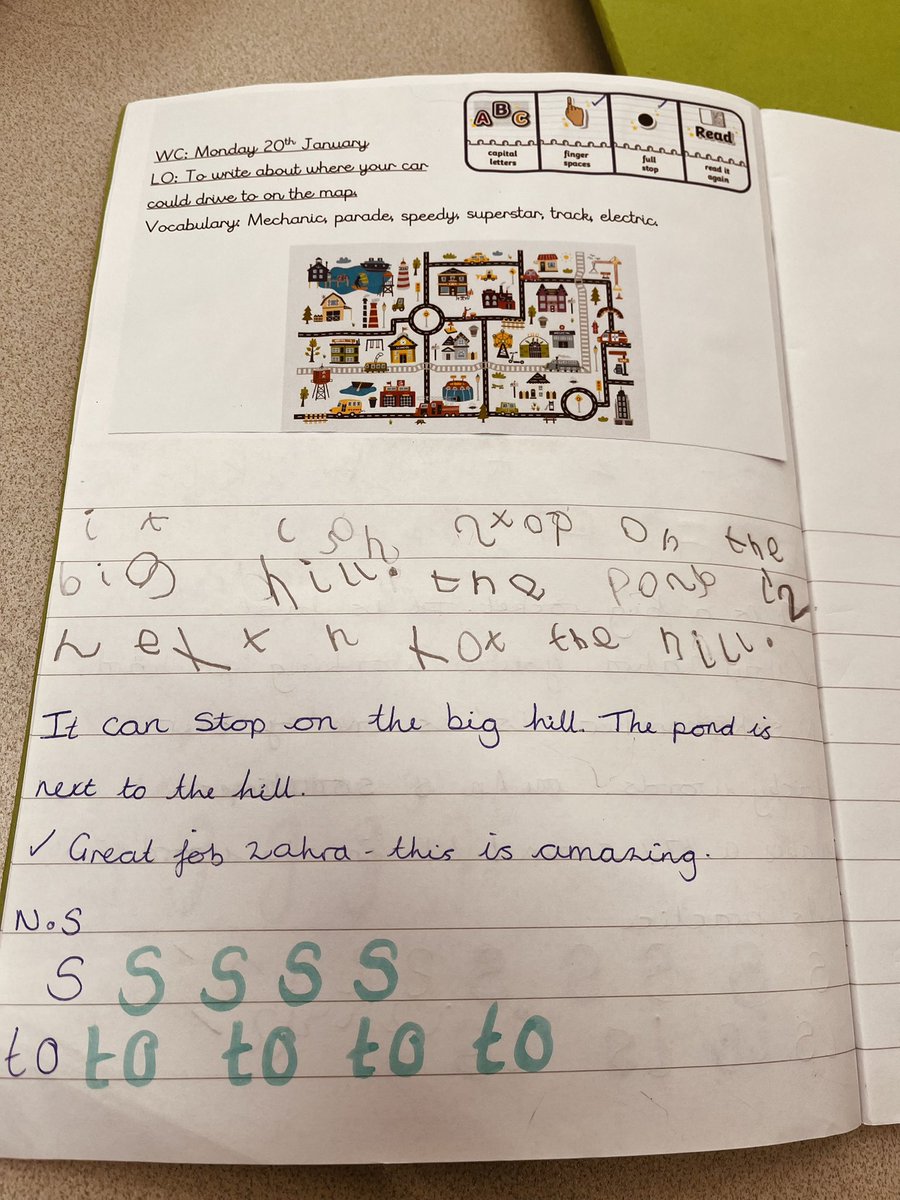 ABC
capital letters
finger spaces
full stop
Read
read it again
WC: Monday 20th January
LO: To write about where your car
could drive to on the map.
Vocabulary: Mechanic, parade, speedy, superstar, track, electric.
it can stop on the
big hill. the pond is
next to the hill.
It can stop on the big hill. The pond is
next to the hill.
✓ Great job Zahra - this is amazing.
N.S
s s s s s
to to to to to